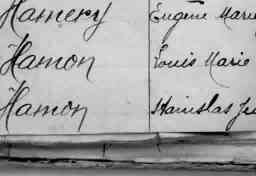 Hamery Eugène Marie
Hamon Louis Marie
Hamon Stanislas